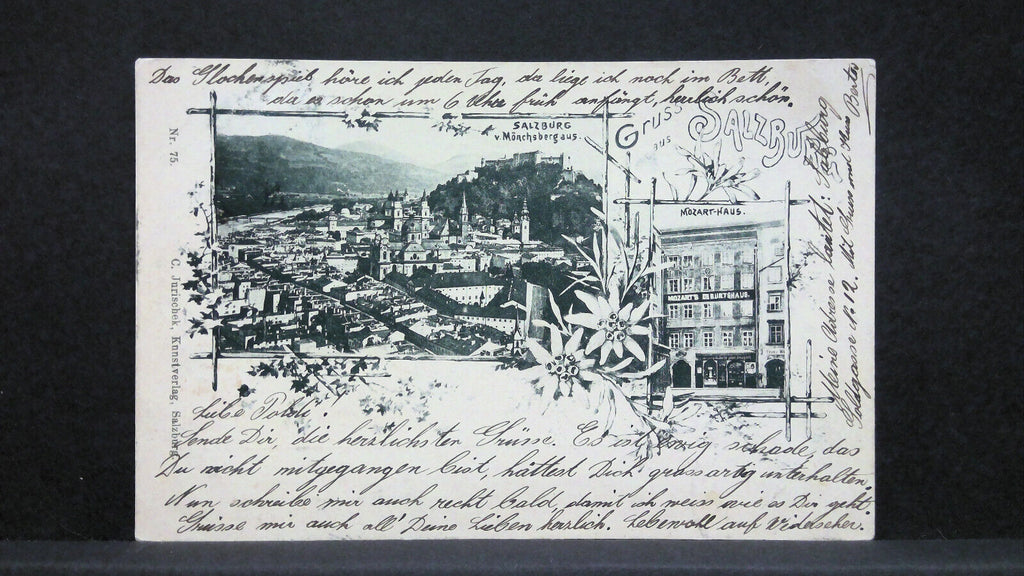 Das Glockenspiel höre ich jeden Tag, da liege ich noch im Bett,
da es schon um 6 Uhr früh anfängt, herrlich schön.
SALZBURG
v. Mönchsberg aus.
GRUSS
aus
SALZBURG
MOZART-HAUS.
MOZART'S GEBURTSHAUS.
Nr. 75.
C. Jurischek, Kunstverlag, Salzburg
Meine Adresse lautet: Salzburg
No 12.
Liebe Poldi!
Sende Dir, die herzlichsten Grüsse. Es ist schade, das
Du nicht mitgegangen bist, hättest Dich grossartig unterhalten.
Nun, schreibe mir auch recht bald, damit ich weiss wie es Dir geht
Grüsse mir auch all' Deine Lieben herzlich. Lebewohl auf